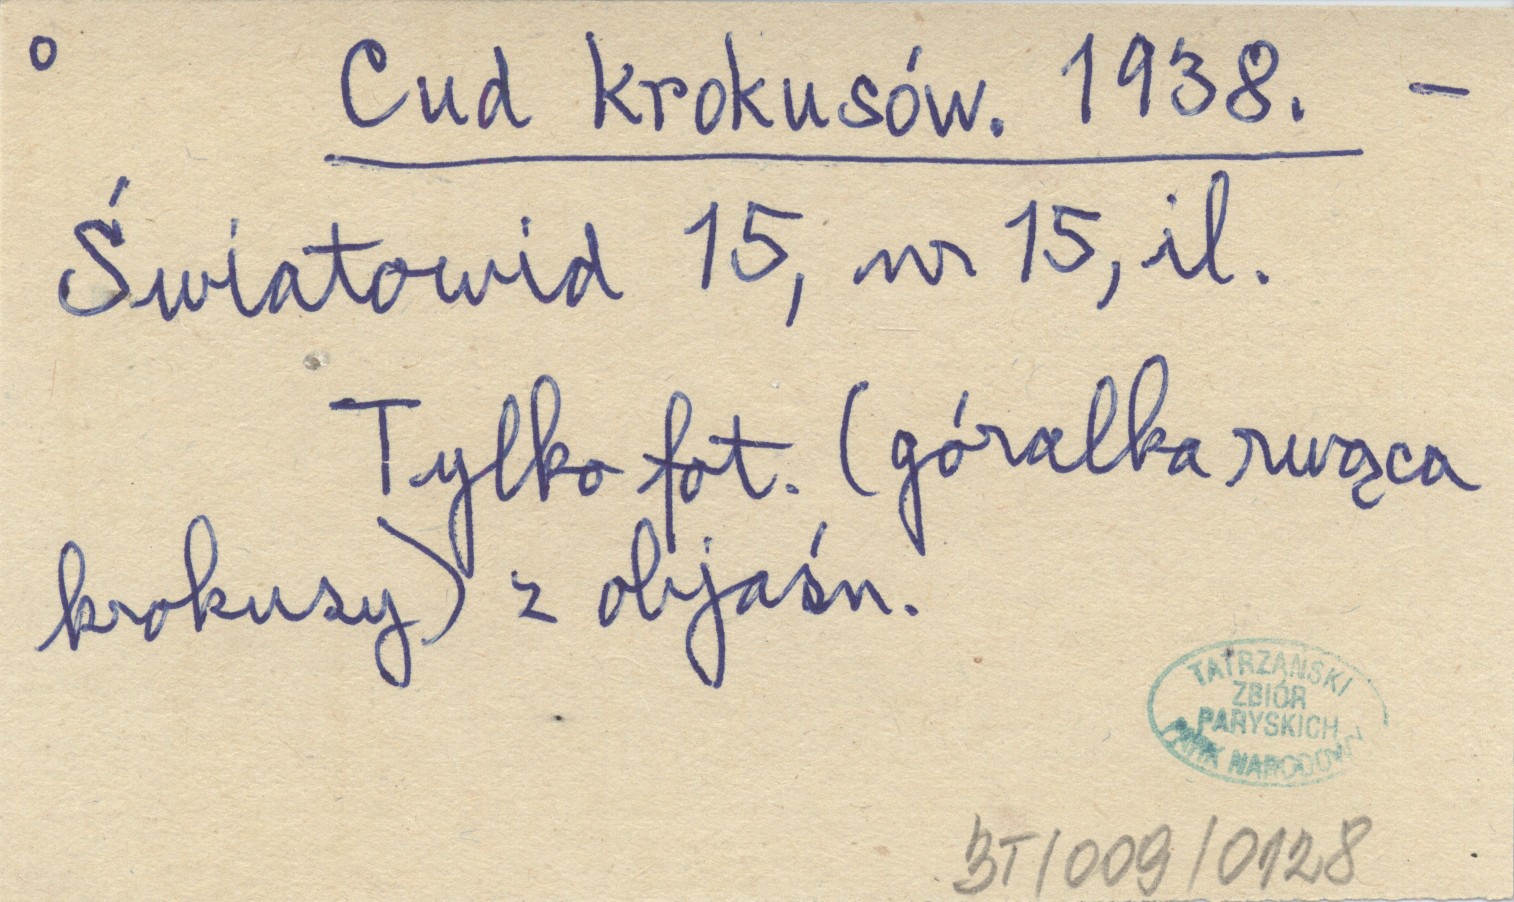 o Cud krokusów. 1938. –
Światowid 15, nr 15, il.
Tylko fot. (góralka rwąca
krokusy) z objaśn.
TATRZAŃSKI
ZBIÓR
PARYSKICH
PARK NARODOWY
BT/009/0128